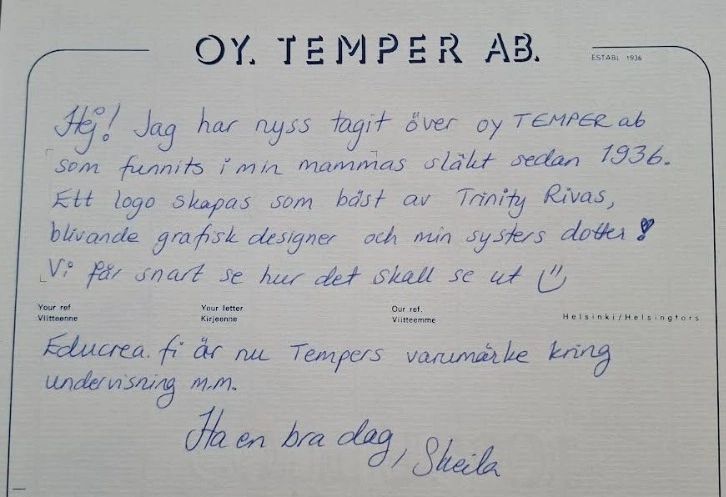 OY. TEMPER AB.
ESTABL 1936
Hej! Jag har nyss tagit över oy TEMPER ab
som funnits i min mammas släkt sedan 1936.
Ett logo skapas som bäst av Trinity Rivas,
blivande grafisk designer och min systers dotter!
Vi får snart se hur det skall se ut
Your ref. Your letter Our ref.
Viitteenne Kirjeenne Viitteemme Helsinki/Helsingfors
Educrea.fi är nu Tempers varumärke kring
undervisning m.m.
Ha en bra dag, Sheila